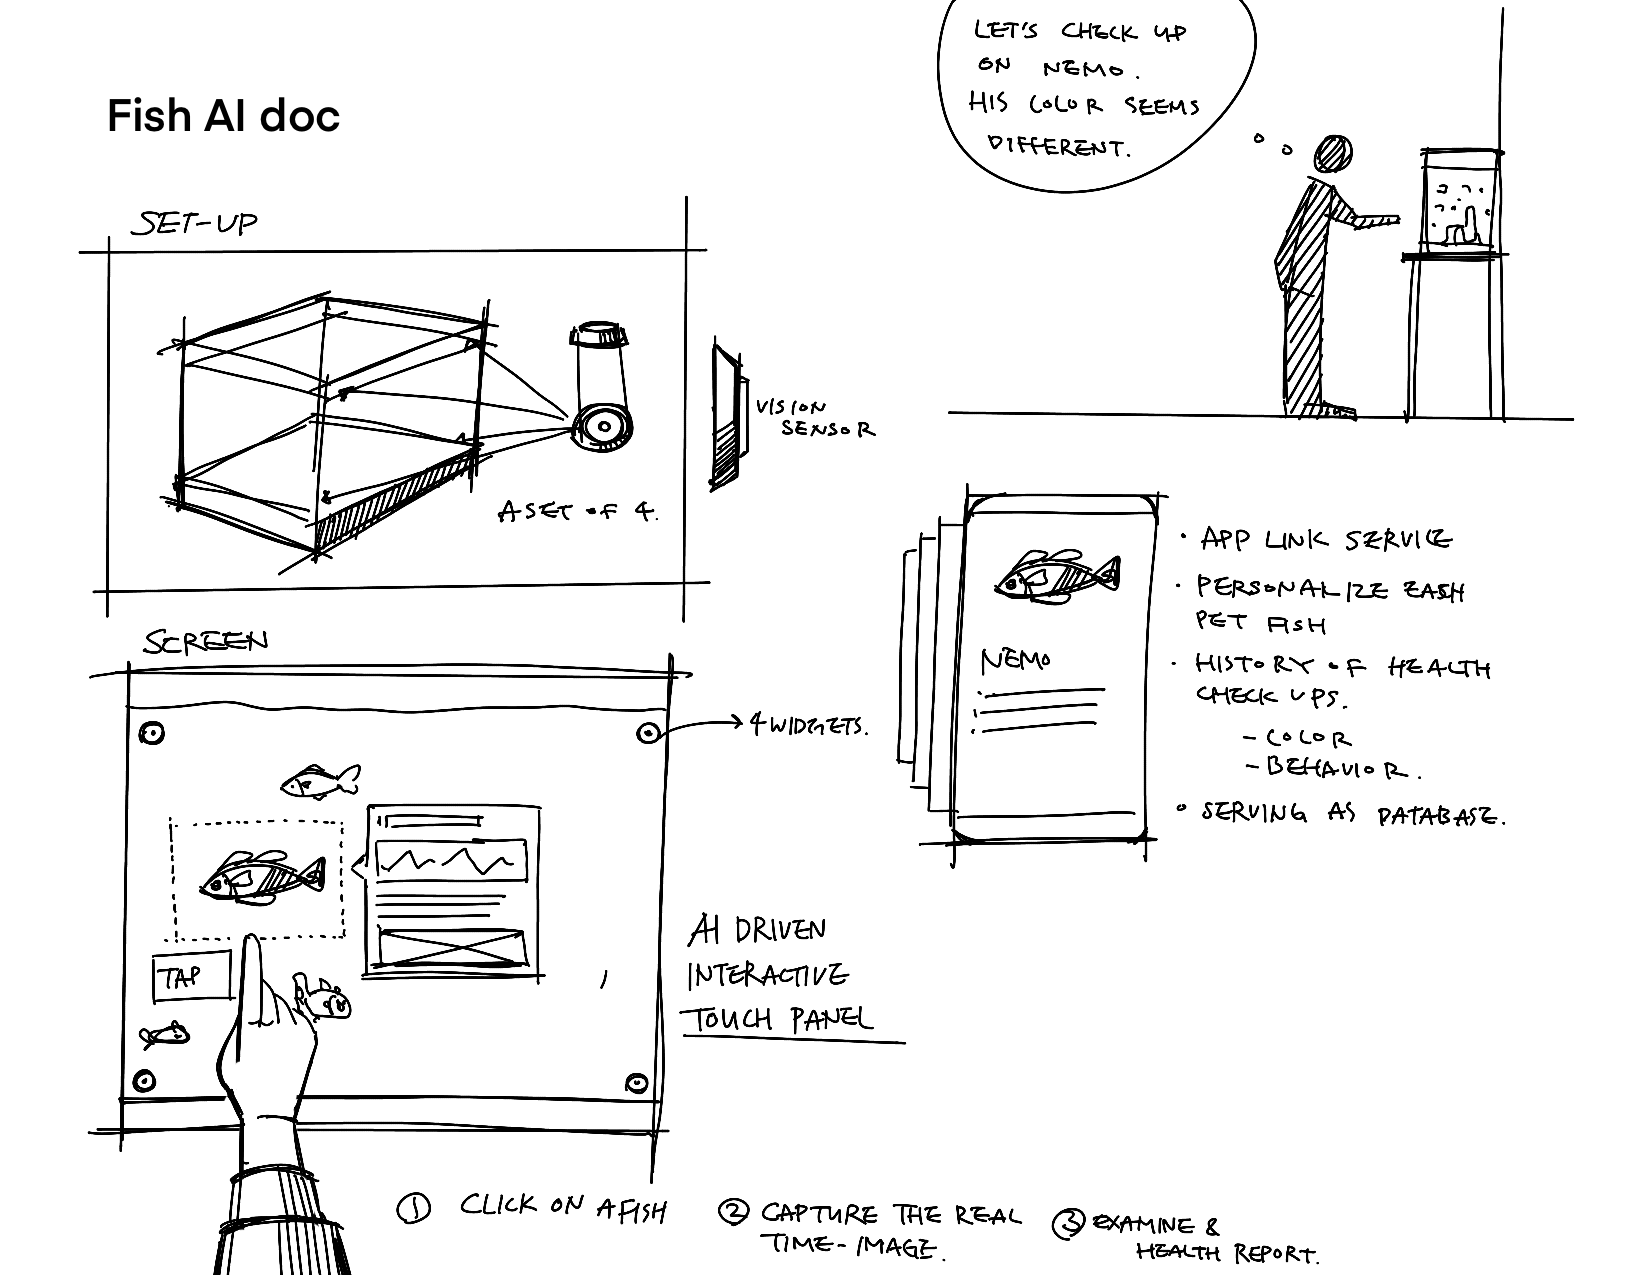 Fish AI doc
LET'S CHECK UP
ON NEMO.
HIS COLOR SEEMS
DIFFERENT.
SET-UP
VISION
SENSOR
A SET OF 4.
SCREEN
4 WIDGETS.
TAP
AI DRIVEN
INTERACTIVE
TOUCH PANEL
NEMO
• APP LINK SERVICE
• PERSONALIZE EASH
PET FISH
• HISTORY OF HEALTH
CHECK UPS.
- COLOR
- BEHAVIOR.
• SERVING AS DATABASE.
① CLICK ON A FISH
② CAPTURE THE REAL
TIME-IMAGE.
③ EXAMINE &
HEALTH REPORT.